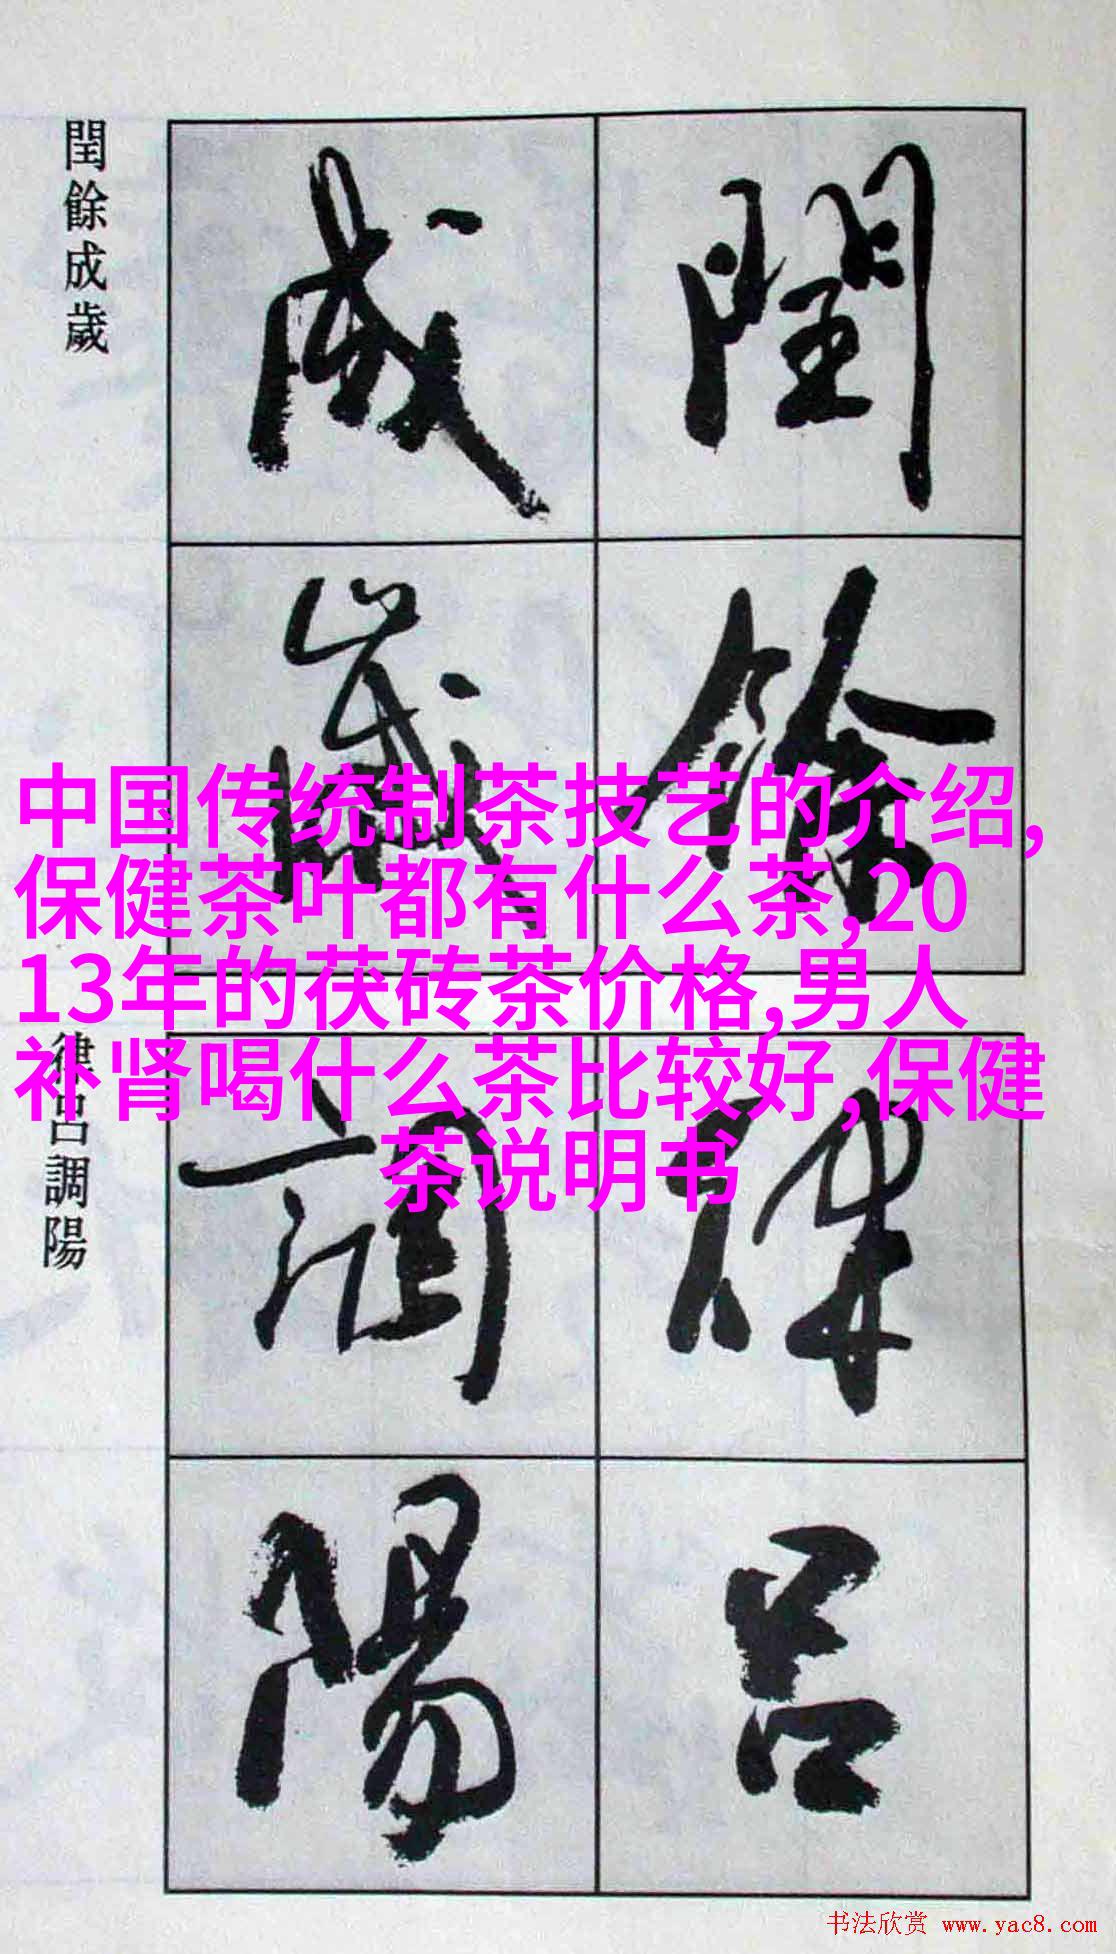 閏餘成歲
閏
餘
成
歲
中国传统制茶技艺的介绍,
保健茶叶都有什么茶,20
13年的茯砖茶价格,男人
补肾喝什么茶比较好,保健
茶说明书
律呂調陽
律
呂
調
陽
书法欣赏 www.yac8.com